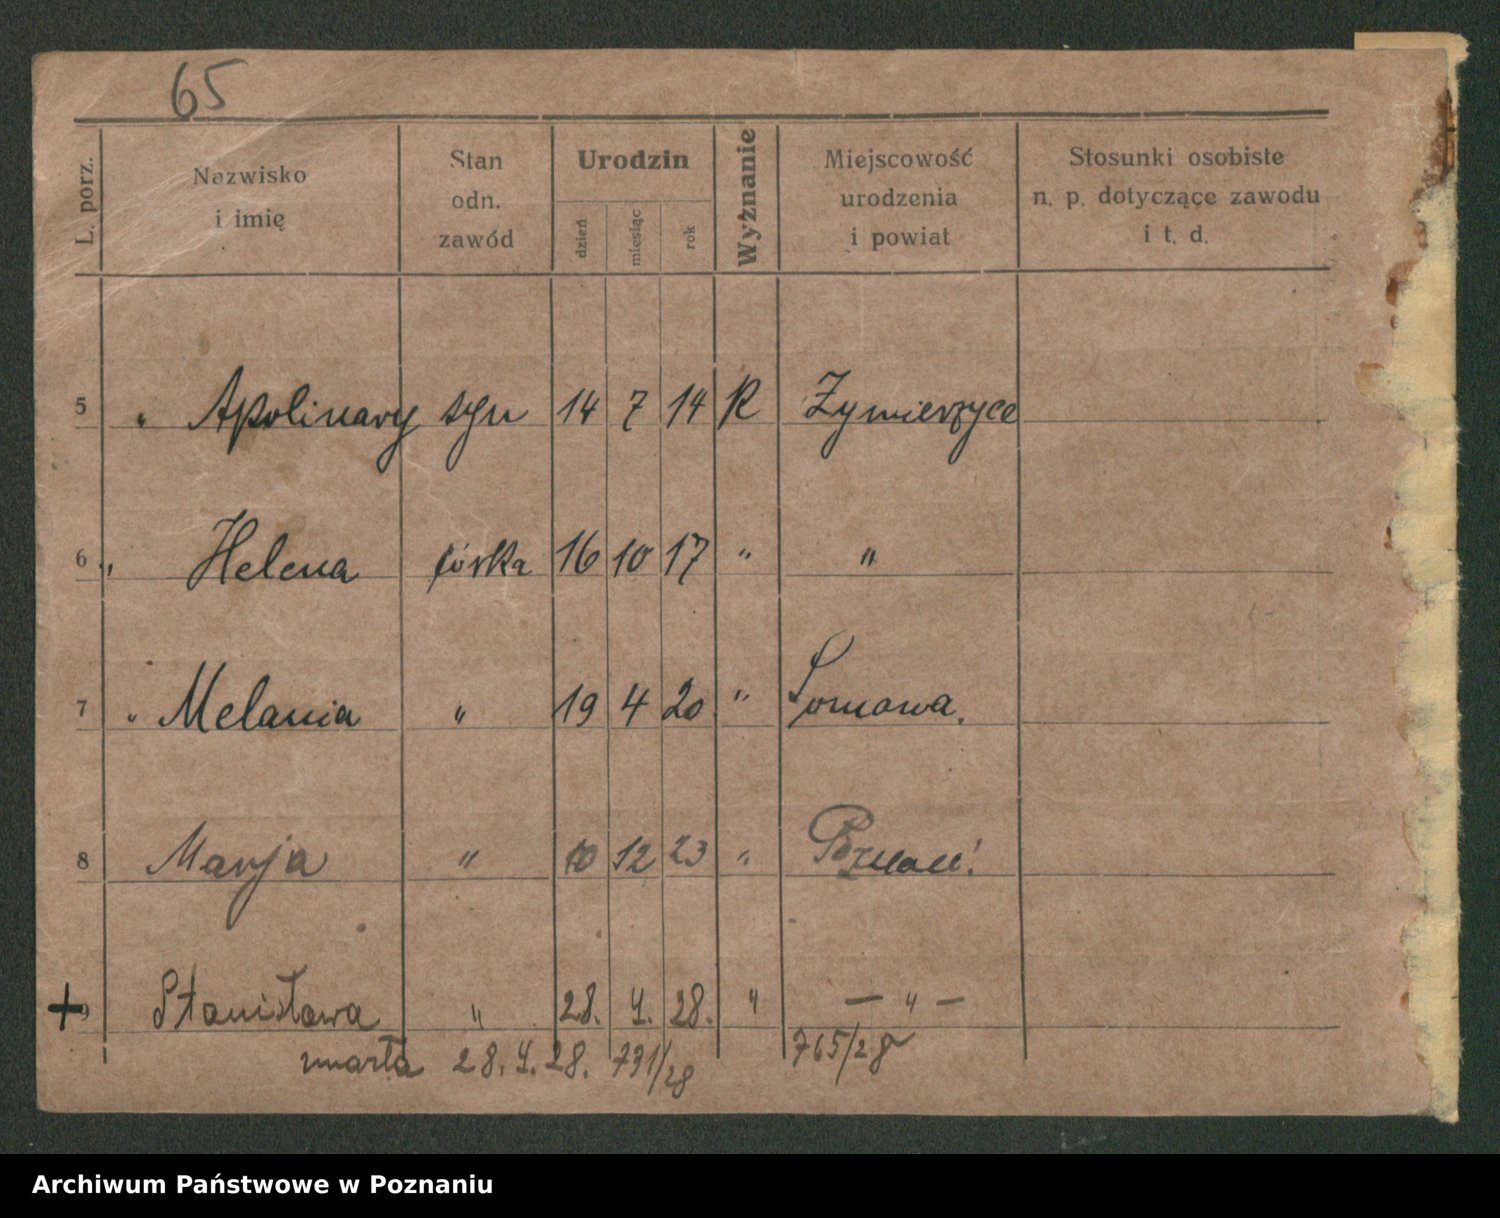 65
L. porz.
Nazwisko
i imię
Stan
odn.
zawód
Urodzin
dzień
miesiąc
rok
Wyznanie
Miejscowość
urodzenia
i powiat
Stosunki osobiste
n. p. dotyczące zawodu
i t. d.
5 " Apolinary syn 14 7 14 R Zymierzyce
6 " Helena córka 16 10 17 " "
7 " Melania " 19 4 20 " 
8 Marja " 10 12 23 " Poznań
+ 9 Stanisława " 28. 4. 28. " — " —
zmarła 28. 4. 28. 731/28 765/28
Archiwum Państwowe w Poznaniu